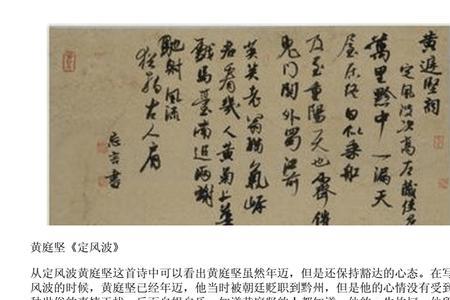 黄庭堅詞
定風波次高左藏使君
萬里黔中一漏天
屋居終日似乘船
及至重陽天也霽
鬼門關外蜀江前
莫笑老翁猶氣岸
君看幾人黄菊上華
戲馬臺南追兩謝
馳射風流
猶拍古人肩
黄庭坚《定风波》
从定风波黄庭坚这首诗中可以看出黄庭坚虽然年迈，但是还保持豁达的心态。在写
风波的时候，黄庭坚已经年迈，他当时被朝廷贬职到黔州，但是他的心情没有受到